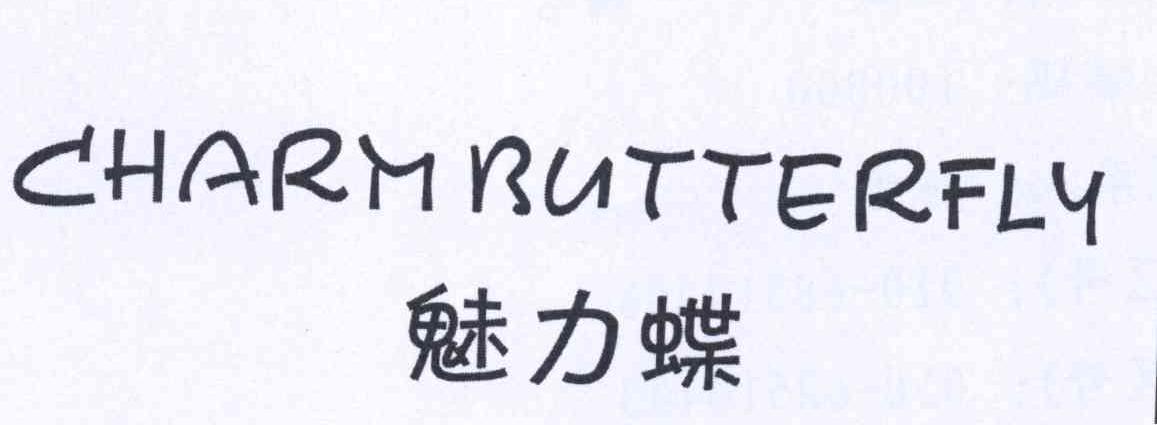 CHARM BUTTERFLY
魅力蝶